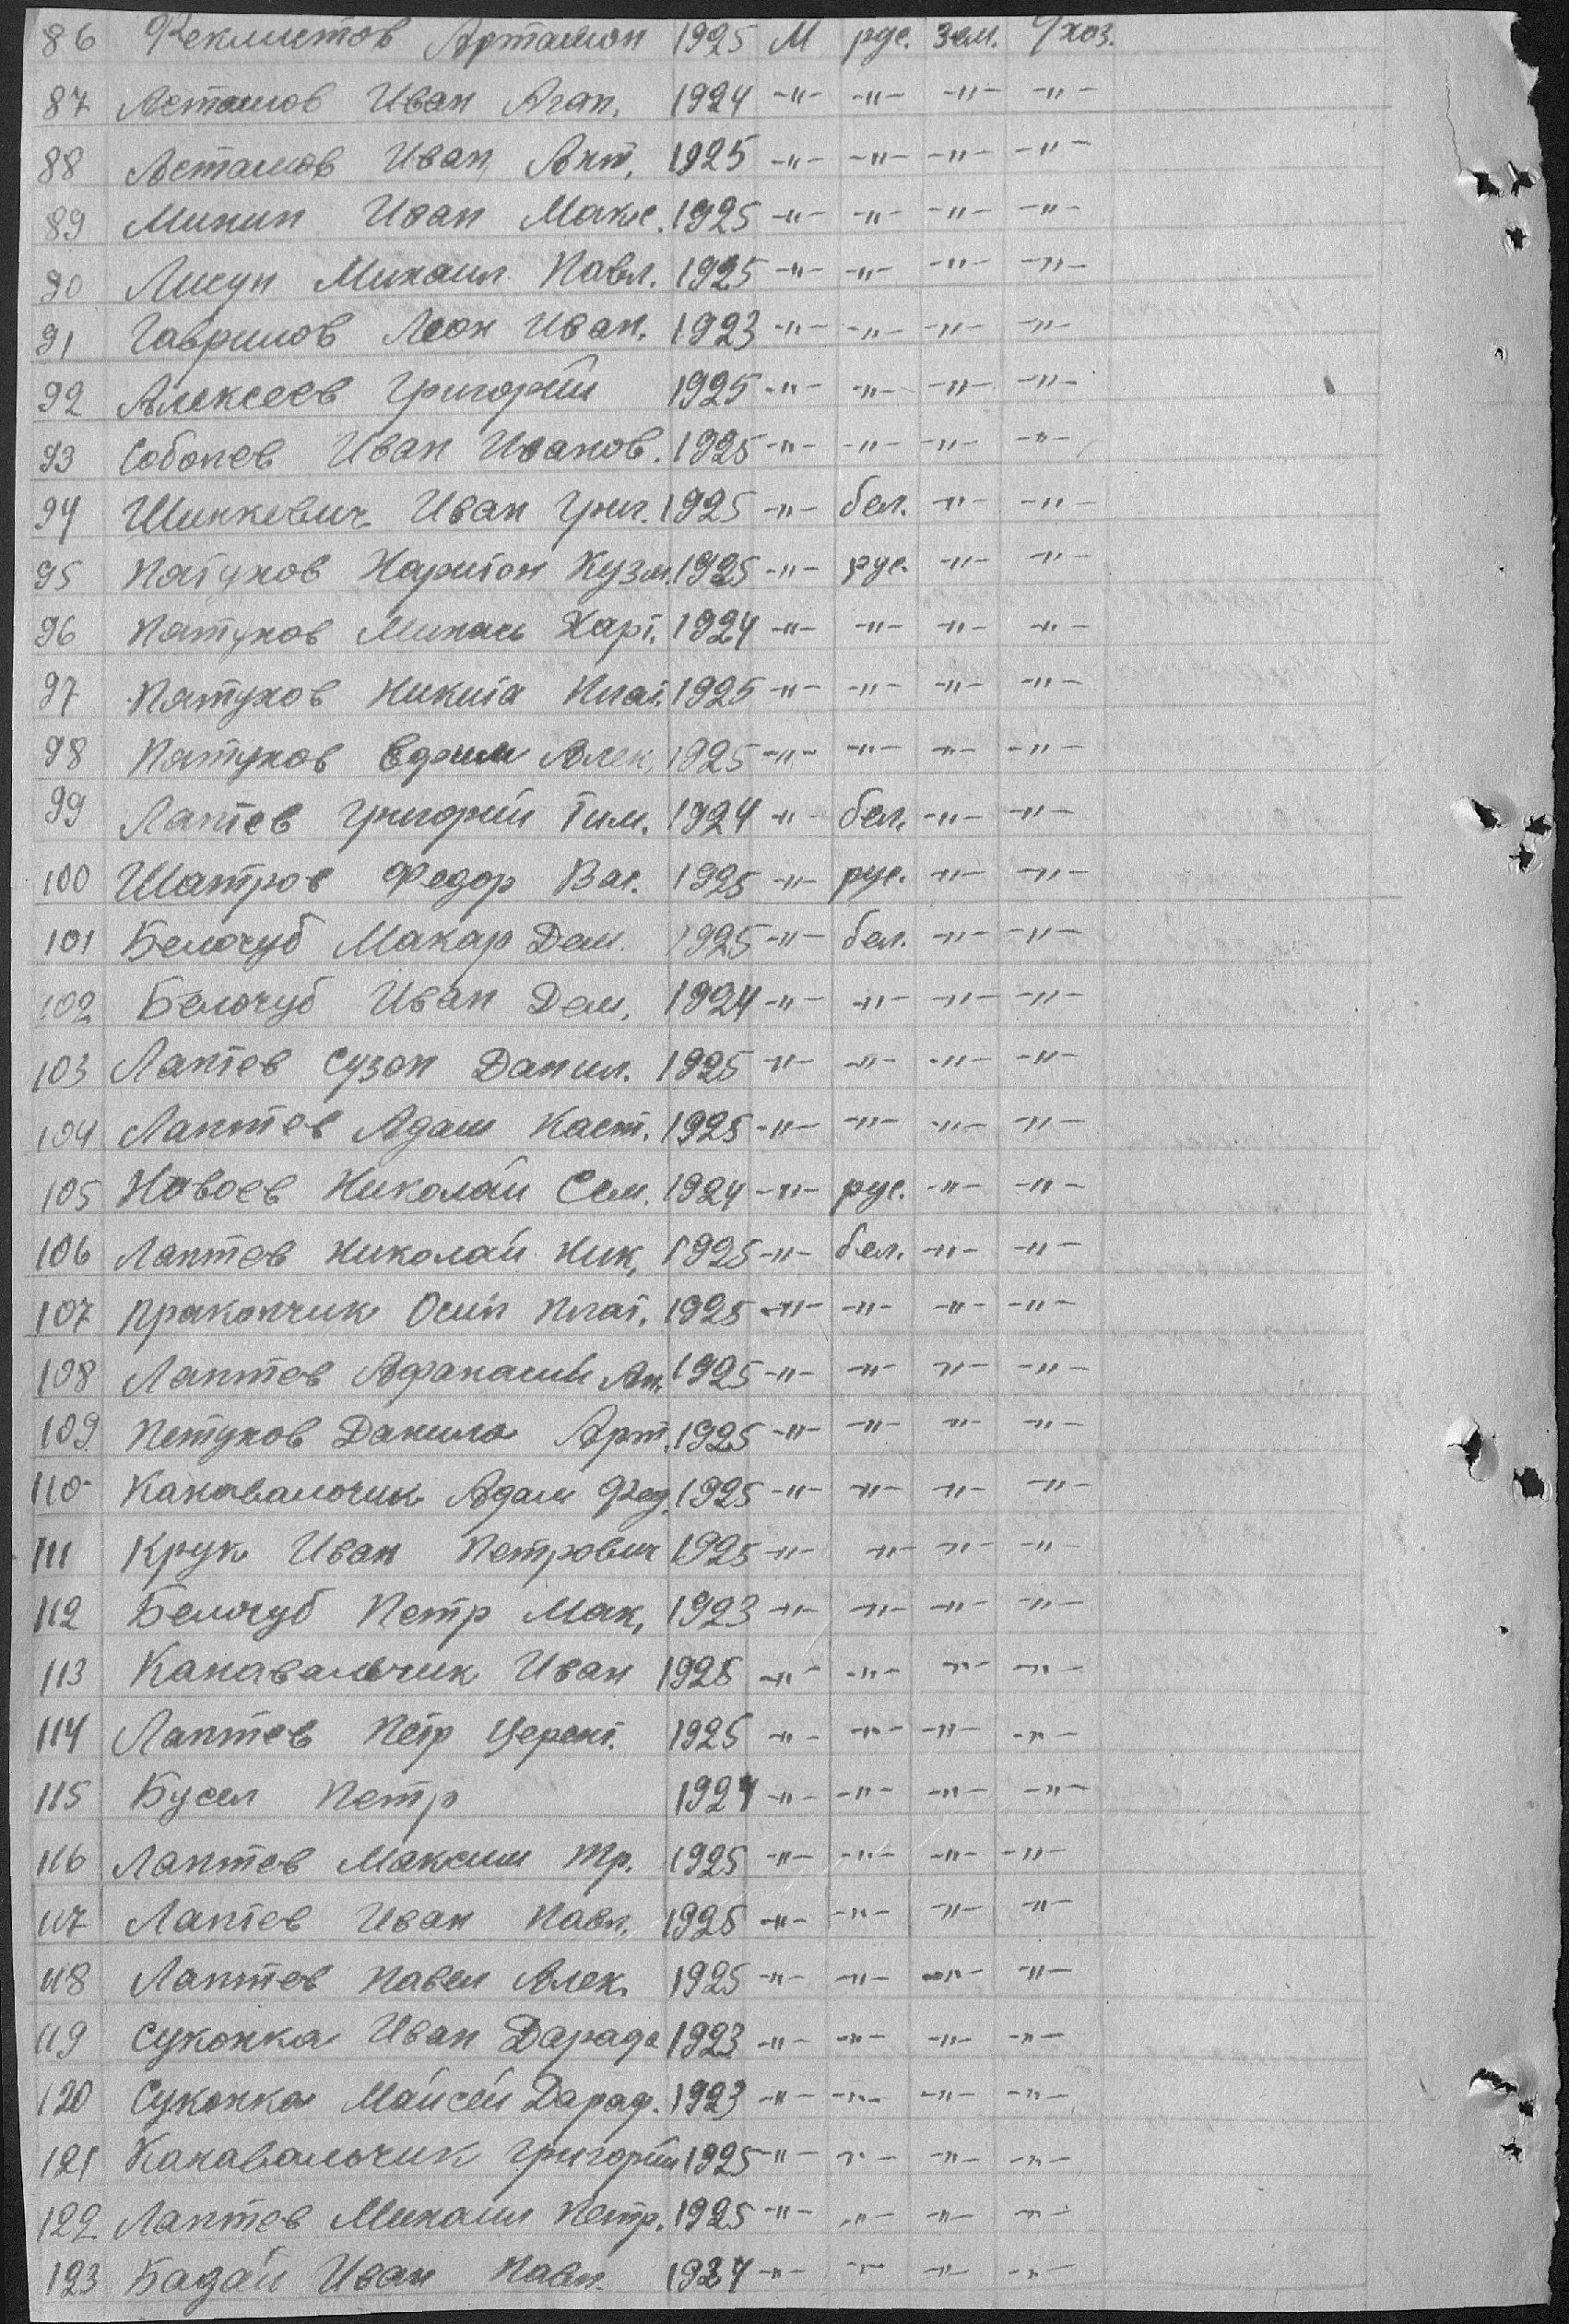 86 Феклистов Артамон 1925 М рус. зем. с/хоз.
87 Асташов Иван Агап. 1924 -"- -"- -"- -"-
88 Асташов Иван Ант. 1925 -"- -"- -"- -"-
89 Минин Иван Макс. 1925 -"- -"- -"- -"-
90 Лисун Михаил Павл. 1925 -"- -"- -"- -"-
91 Гаврилов Леон Иван. 1923 -"- -"- -"- -"-
92 Алексеев Григорий 1925 -"- -"- -"- -"-
93 Соболев Иван Иванов. 1925 -"- -"- -"- -"-
94 Шинкевич Иван Григ. 1925 -"- бел. -"- -"-
95 Патухов Харитон Кузм. 1925 -"- рус. -"- -"-
96 Патухов Михась Харт. 1924 -"- -"- -"- -"-
97 Патухов Никита Плат. 1925 -"- -"- -"- -"-
98 Патухов Ефим Алек. 1925 -"- -"- -"- -"-
99 Лаптев Григорий Тим. 1924 -"- бел. -"- -"-
100 Шатров Федор Вас. 1925 -"- рус. -"- -"-
101 Белочуб Макар Дем. 1925 -"- бел. -"- -"-
102 Белочуб Иван Дем. 1924 -"- -"- -"- -"-
103 Лаптев Сузон Данил. 1925 -"- -"- -"- -"-
104 Лаптев Адам Каст. 1925 -"- -"- -"- -"-
105 Новоев Николай Сем. 1924 -"- рус. -"- -"-
106 Лаптев Николай Ник. 1925 -"- бел. -"- -"-
107 Пракопчик Осип Плат. 1925 -"- -"- -"- -"-
108 Лаптев Афанасий Ан. 1925 -"- -"- -"- -"-
109 Петухов Данила Арт. 1925 -"- -"- -"- -"-
110 Канавальчик Адам Фед. 1925 -"- -"- -"- -"-
111 Крук Иван Петрович 1925 -"- -"- -"- -"-
112 Белочуб Петр Мак. 1923 -"- -"- -"- -"-
113 Канавальчик Иван 1925 -"- -"- -"- -"-
114 Лаптев Петр 1925 -"- -"- -"- -"-
115 Бусел Петр 1924 -"- -"- -"- -"-
116 Лаптев Максим Тр. 1925 -"- -"- -"- -"-
117 Лаптев Иван Павл. 1925 -"- -"- -"- -"-
118 Лаптев Павел Алек. 1925 -"- -"- -"- -"-
119 Суконка Иван Дарафе 1923 -"- -"- -"- -"-
120 Суконка Майсей Дараф. 1923 -"- -"- -"- -"-
121 Канавальчик Григорий 1925 -"- -"- -"- -"-
122 Лаптев Михаил Петр. 1925 -"- -"- -"- -"-
123 Бадай Иван Павл. 1924 -"- -"- -"- -"-